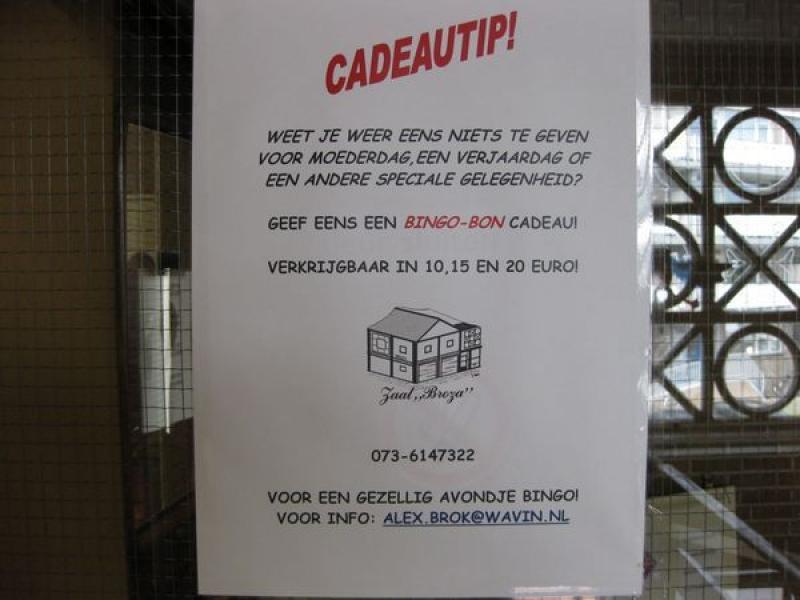 CADEAUTIP!
WEET JE WEER EENS NIETS TE GEVEN
VOOR MOEDERDAG,EEN VERJAARDAG OF
EEN ANDERE SPECIALE GELEGENHEID?
GEEF EENS EEN BINGO-BON CADEAU!
VERKRIJGBAAR IN 10,15 EN 20 EURO!
Zaal „Broza"
073-6147322
VOOR EEN GEZELLIG AVONDJE BINGO!
VOOR INFO: ALEX.BROK@WAVIN.NL